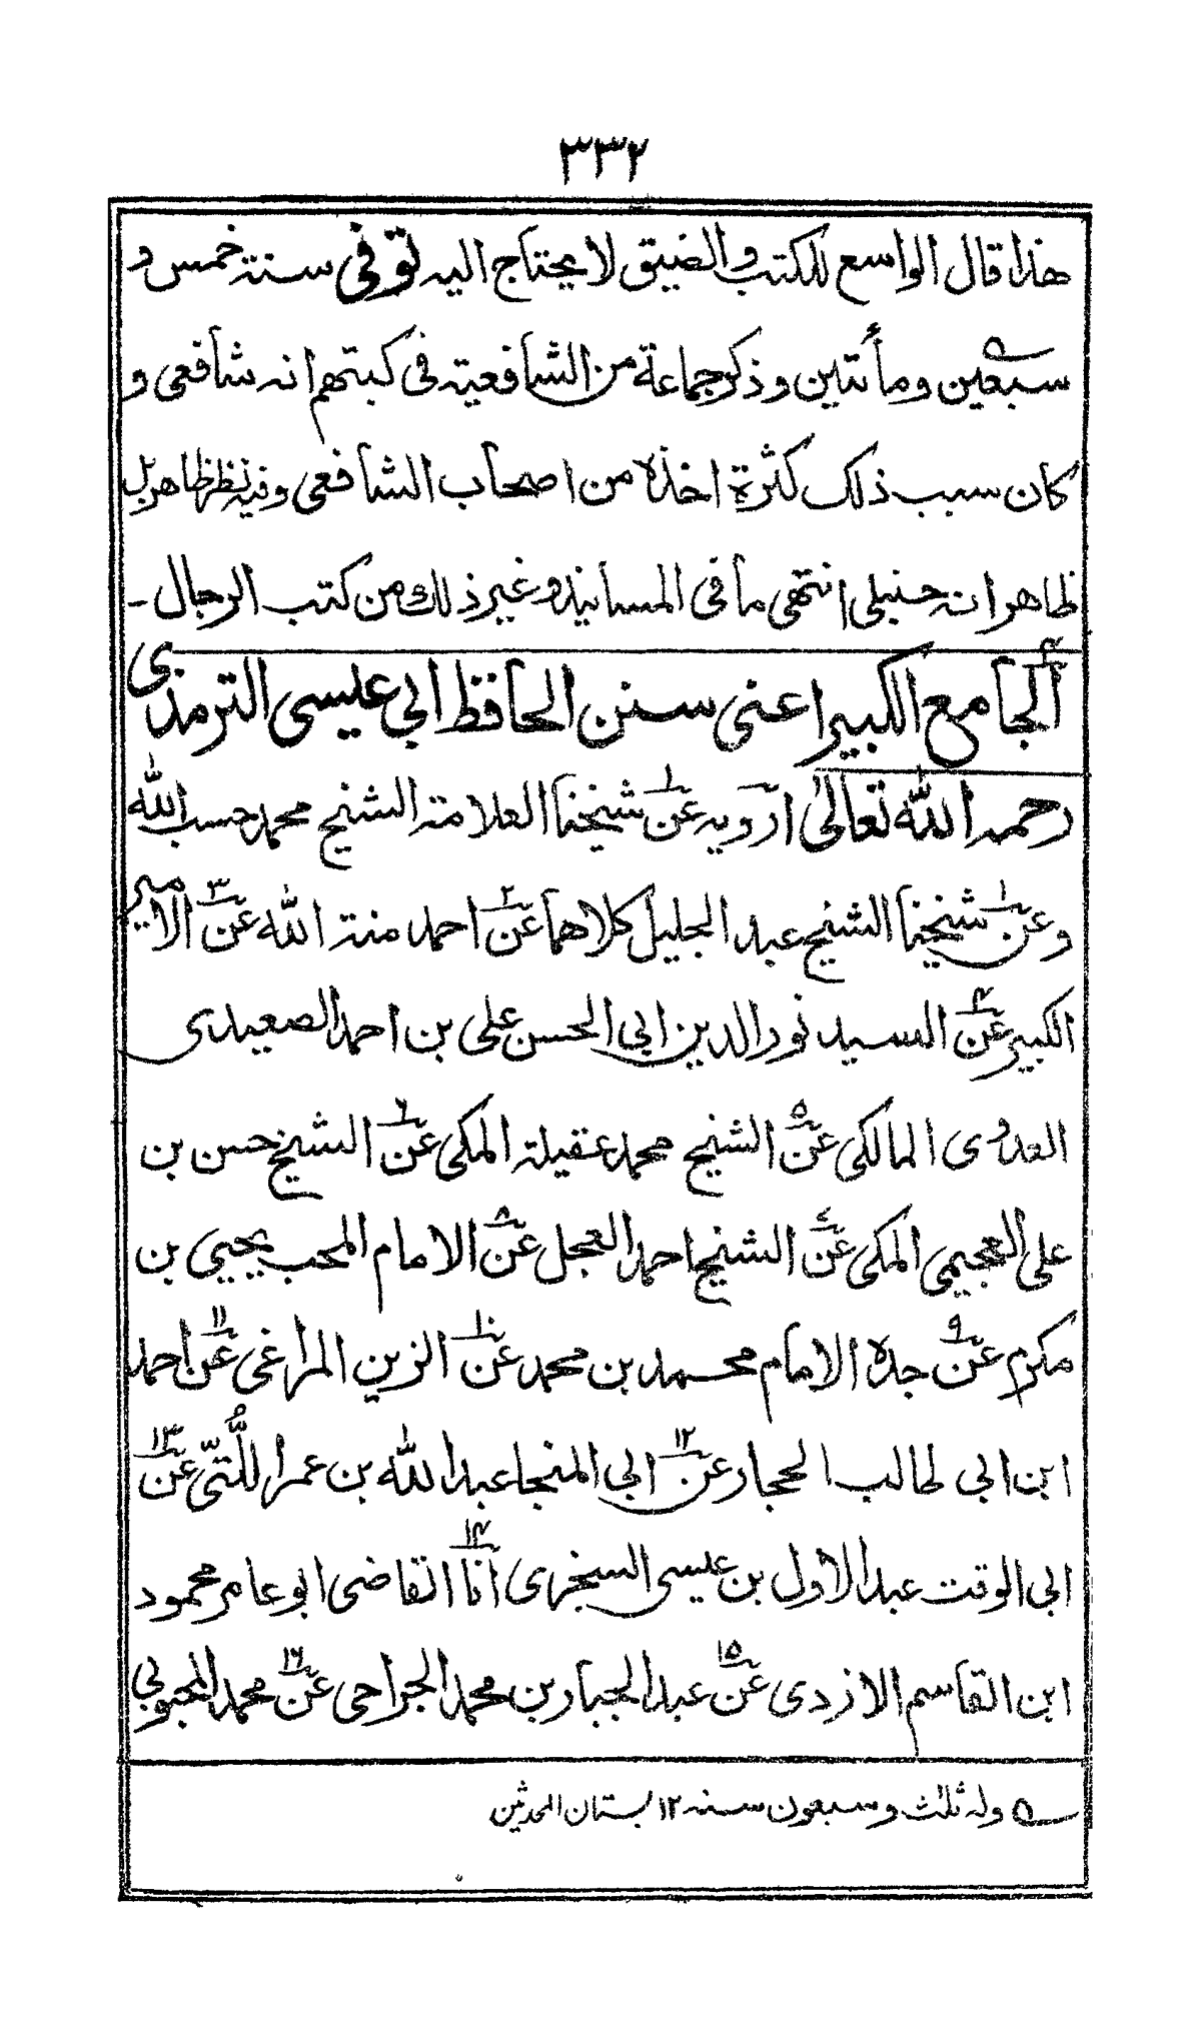 ٣٣٢
هذا قال الواسع للكتب والضيق لا يحتاج اليه توفى سنة خمس و
سبعين ومأئتين وذكر جماعة من الشافعية فى كتبهم انه شافعى و
كان سبب ذلك كثرة اخذه من اصحاب الشافعى وفيه نظر ظاهر بل
ظاهر انه حنبلى انتهى ما فى المسانيد وغير ذلك من كتب الرجال -
ألجامع الكبير اعنى سنن الحافظ ابي عيسى الترمذى
رحمه الله تعالىٰ ارويه عن١ شيخنا العلامة الشيخ محمد حسب الله
وعن١ شيخنا الشيخ عبد الجليل كلاهما عن٢ احمد منة الله عن٣ الامير
الكبير عن٤ السيد نور الدين ابي الحسن على بن احمد الصعيدى
العدوى المالكى عن٥ الشيخ محمد عقيلة المكى عن٦ الشيخ حسن بن
على العجيمى المكى عن٧ الشيخ احمد العجل عن٨ الامام المحب يحيي بن
مكرم عن٩ جده الامام محمد بن محمد عن١٠ الزين المراغى عن١١ احمد
ابن ابي طالب الحجار عن١٢ ابي المنجا عبد الله بن عمر اللُّتىّ عن١٣
ابي الوقت عبد الاول بن عيسى السجزى أنا١٤ القاضى ابو عامر محمود
ابن القاسم الازدى عن١٥ عبد الجبار بن محمد الجراحى عن١٦ محمد المحبوبي
ە وله ثلث وسبعون سنه ١٢ بستان المحدثين